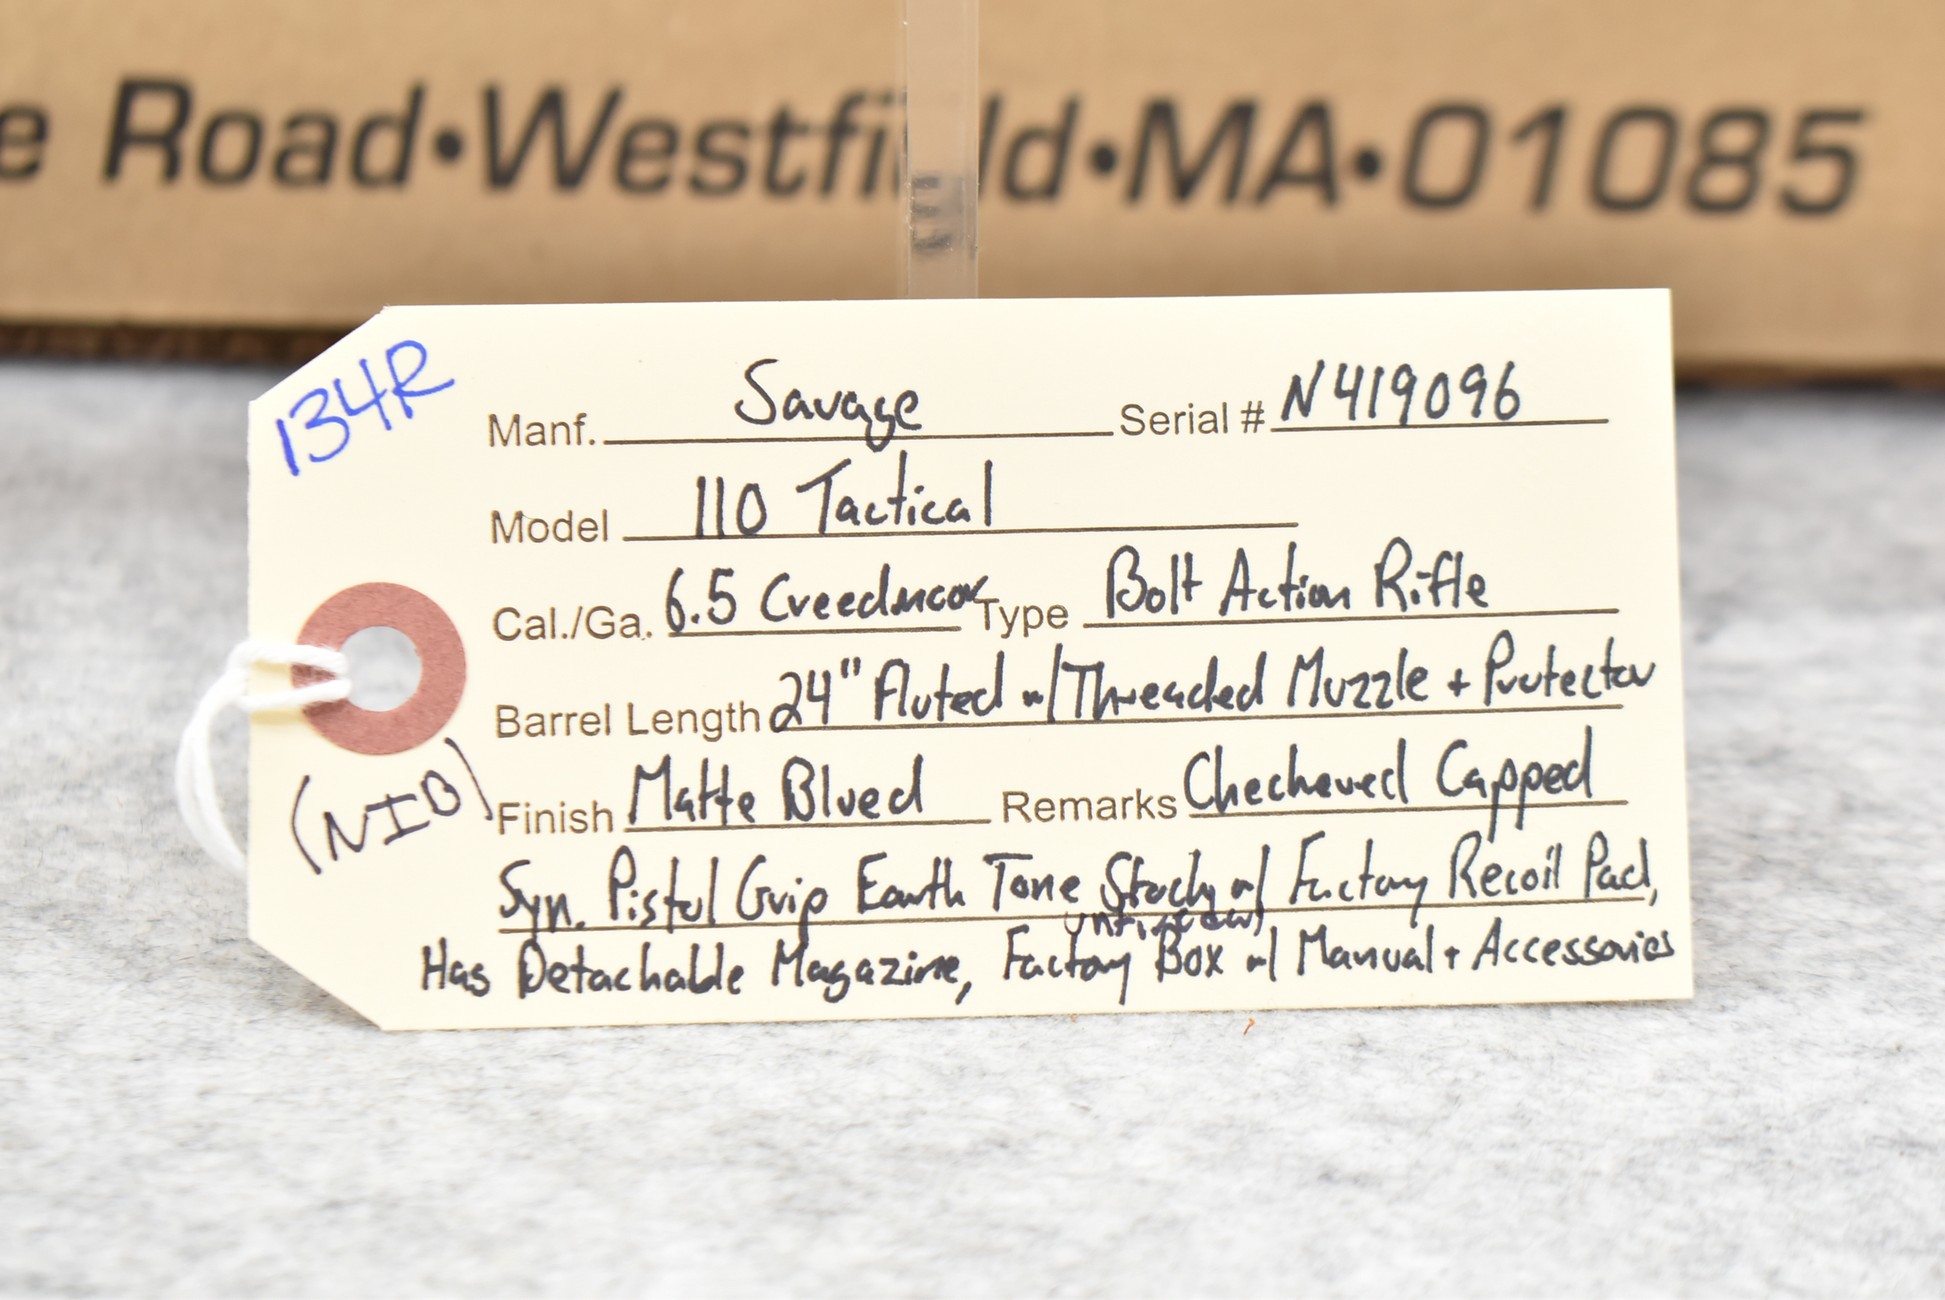 e Road•Westfield•MA•01085
134R
Manf. Savage Serial # N419096
Model 110 Tactical
Cal./Ga. 6.5 Creedmoor Type Bolt Action Rifle
Barrel Length 24" Fluted w/Threaded Muzzle + Protector
(NIB)
Finish Matte Blued Remarks Checkered Capped
Syn. Pistol Grip Earth Tone Stock w/ Factory Recoil Pad,
Has Detachable Magazine, Factory Box w/ Manual + Accessories